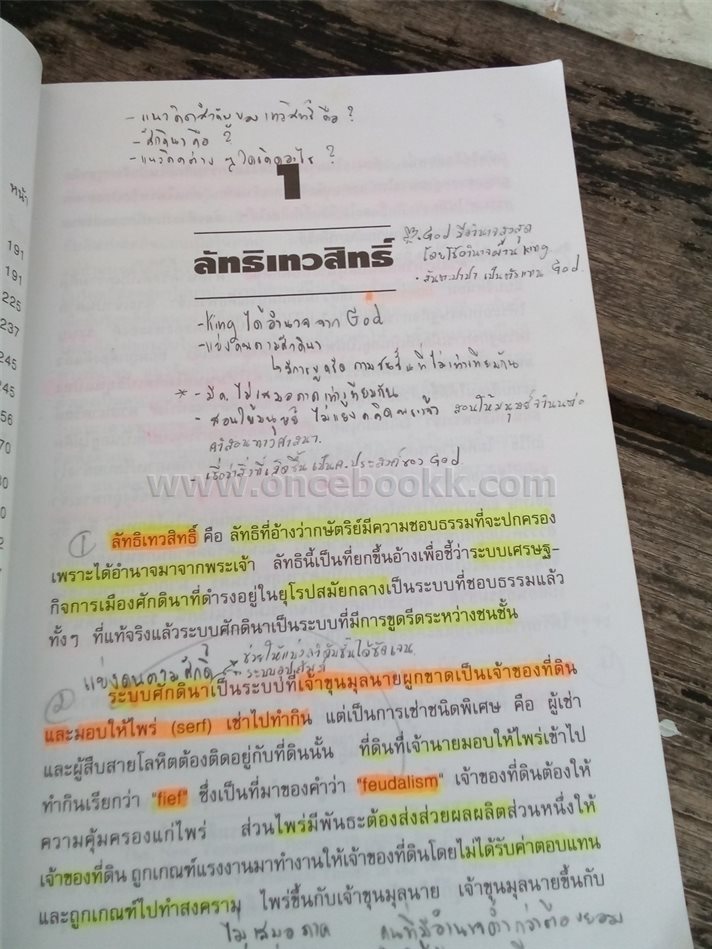 - แนวคิดสำคัญของ เทวสิทธิ์ คือ ?
- ศักดินา คือ ?
- แนวคิดต่าง ๆ
1
ลัทธิเทวสิทธิ์
God มีอำนาจสูงสุด
โดยใช้อำนาจผ่าน King
เป็นตัวแทน God
- King ได้อำนาจ จาก God
- แบ่งคนตามศักดินา
ชนชั้น ที่ไม่เท่าเทียมกัน
* - ไม่เสมอภาค เท่าเทียมกัน
- สอนให้มนุษย์ ไม่แยง สอนให้มนุษย์
คำสอนทางศาสนา
- เชื่อว่าสิ่งที่เกิดขึ้น เป็น ประสงค์ของ God
www.oncebookk.com
1 ลัทธิเทวสิทธิ์ คือ ลัทธิที่อ้างว่ากษัตริย์มีความชอบธรรมที่จะปกครอง
เพราะได้อำนาจมาจากพระเจ้า ลัทธินี้เป็นที่ยกขึ้นอ้างเพื่อชี้ว่าระบบเศรษฐ-
กิจการเมืองศักดินาที่ดำรงอยู่ในยุโรปสมัยกลางเป็นระบบที่ชอบธรรมแล้ว
ทั้งๆ ที่แท้จริงแล้วระบบศักดินาเป็นระบบที่มีการขูดรีดระหว่างชนชั้น
แบ่งคนตามศักดิ์
ช่วยให้แบ่ง ชั้นได้ชัดเจน
ระบบอุปถัมภ์
2 ระบบศักดินาเป็นระบบที่เจ้าขุนมูลนายผูกขาดเป็นเจ้าของที่ดิน
และมอบให้ไพร่ (serf) เช่าไปทำกิน แต่เป็นการเช่าชนิดพิเศษ คือ ผู้เช่า
และผู้สืบสายโลหิตต้องติดอยู่กับที่ดินนั้น ที่ดินที่เจ้านายมอบให้ไพร่เข้าไป
ทำกินเรียกว่า "fief" ซึ่งเป็นที่มาของคำว่า "feudalism" เจ้าของที่ดินต้องให้
ความคุ้มครองแก่ไพร่ ส่วนไพร่มีพันธะต้องส่งส่วยผลผลิตส่วนหนึ่งให้
เจ้าของที่ดิน ถูกเกณฑ์แรงงานมาทำงานให้เจ้าของที่ดินโดยไม่ได้รับค่าตอบแทน
และถูกเกณฑ์ไปทำสงคราม ไพร่ขึ้นกับเจ้าขุนมูลนาย เจ้าขุนมูลนายขึ้นกับ
ไม่เสมอภาค คนที่มีอำนาจต่ำกว่าต้องยอม
หน้า
191
191
225
237
245
245
56
70